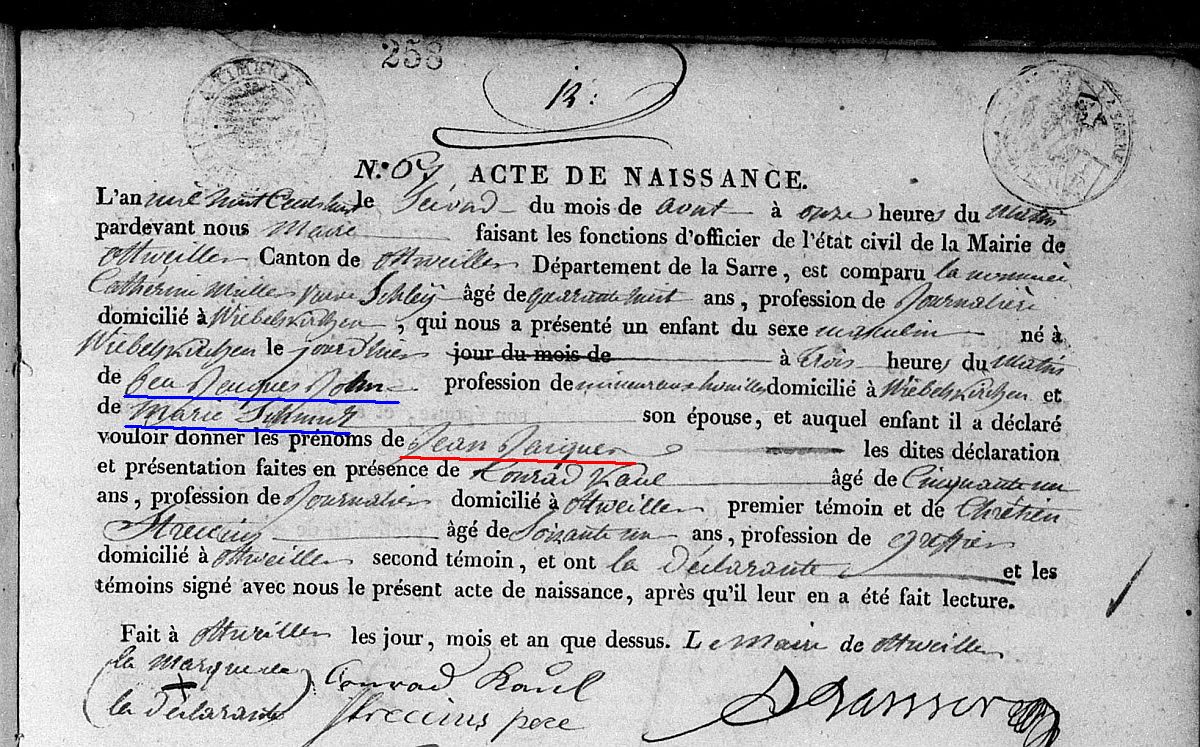 258
12:
N.° 67 ACTE DE NAISSANCE.
L'an mil huit Cent huit le Second du mois de août à onze heures du Matin
pardevant nous Maire faisant les fonctions d'officier de l'état civil de la Mairie de
Ottweiler Canton de Ottweiler Département de la Sarre, est comparu la nommée
Catherine Müller Veuve Schley âgé de quarante huit ans, profession de Journalière
domicilié à Wiebelskirchen, qui nous a présenté un enfant du sexe masculin né à
Wiebelskirchen le jour d'hier jour du mois de à trois heures du Matin
de feu Jacques profession de mineur aux houilles domicilié à Wiebelskirchen et
de Marie Schmidt son épouse, et auquel enfant il a déclaré
vouloir donner les prénoms de Jean Jacques les dites déclaration
et présentation faites en présence de Konrad Kaul âgé de Cinquante un
ans, profession de Journalier domicilié à Ottweiler premier témoin et de Chrétien
Streccius âgé de Soixante un ans, profession de greffier
domicilié à Ottweiler second témoin, et ont la déclarante et les
témoins signé avec nous le présent acte de naissance, après qu'il leur en a été fait lecture.
Fait à Ottweiler les jour, mois et an que dessus. Le Maire de Ottweiler
la marque de
la déclarante
Conrad Kaul
Streccius pere